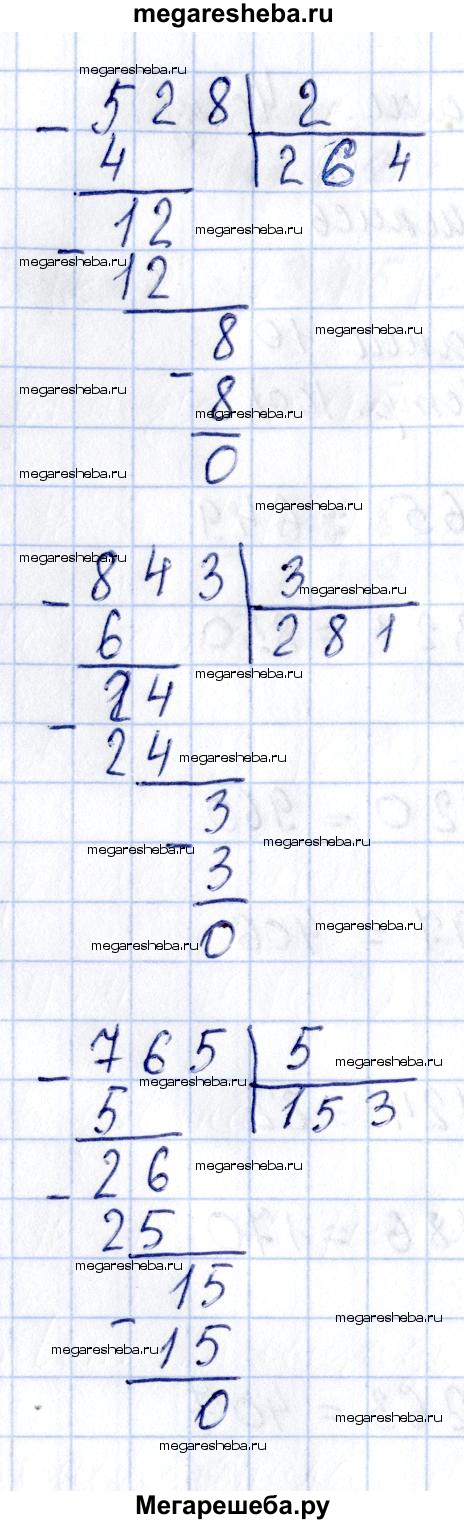 megaresheba.ru
megaresheba.ru
- 528 | 2
4 | 264
12 megaresheba.ru
megaresheba.ru
- 12
8 megaresheba.ru
megaresheba.ru
- 8 megaresheba.ru
megaresheba.ru
0
megaresheba.ru
megaresheba.ru
- 843 | 3 megaresheba.ru
6 | 281
megaresheba.ru
24
- 24 megaresheba.ru
3
megaresheba.ru megaresheba.ru
- 3
megaresheba.ru
megaresheba.ru 0
- 765 | 5 megaresheba.ru
megaresheba.ru
5 | 153
26 megaresheba.ru
- 25
megaresheba.ru
15
megaresheba.ru
- 15 megaresheba.ru
0 megaresheba.ru
megaresheba.ru
Мегарешеба.ру